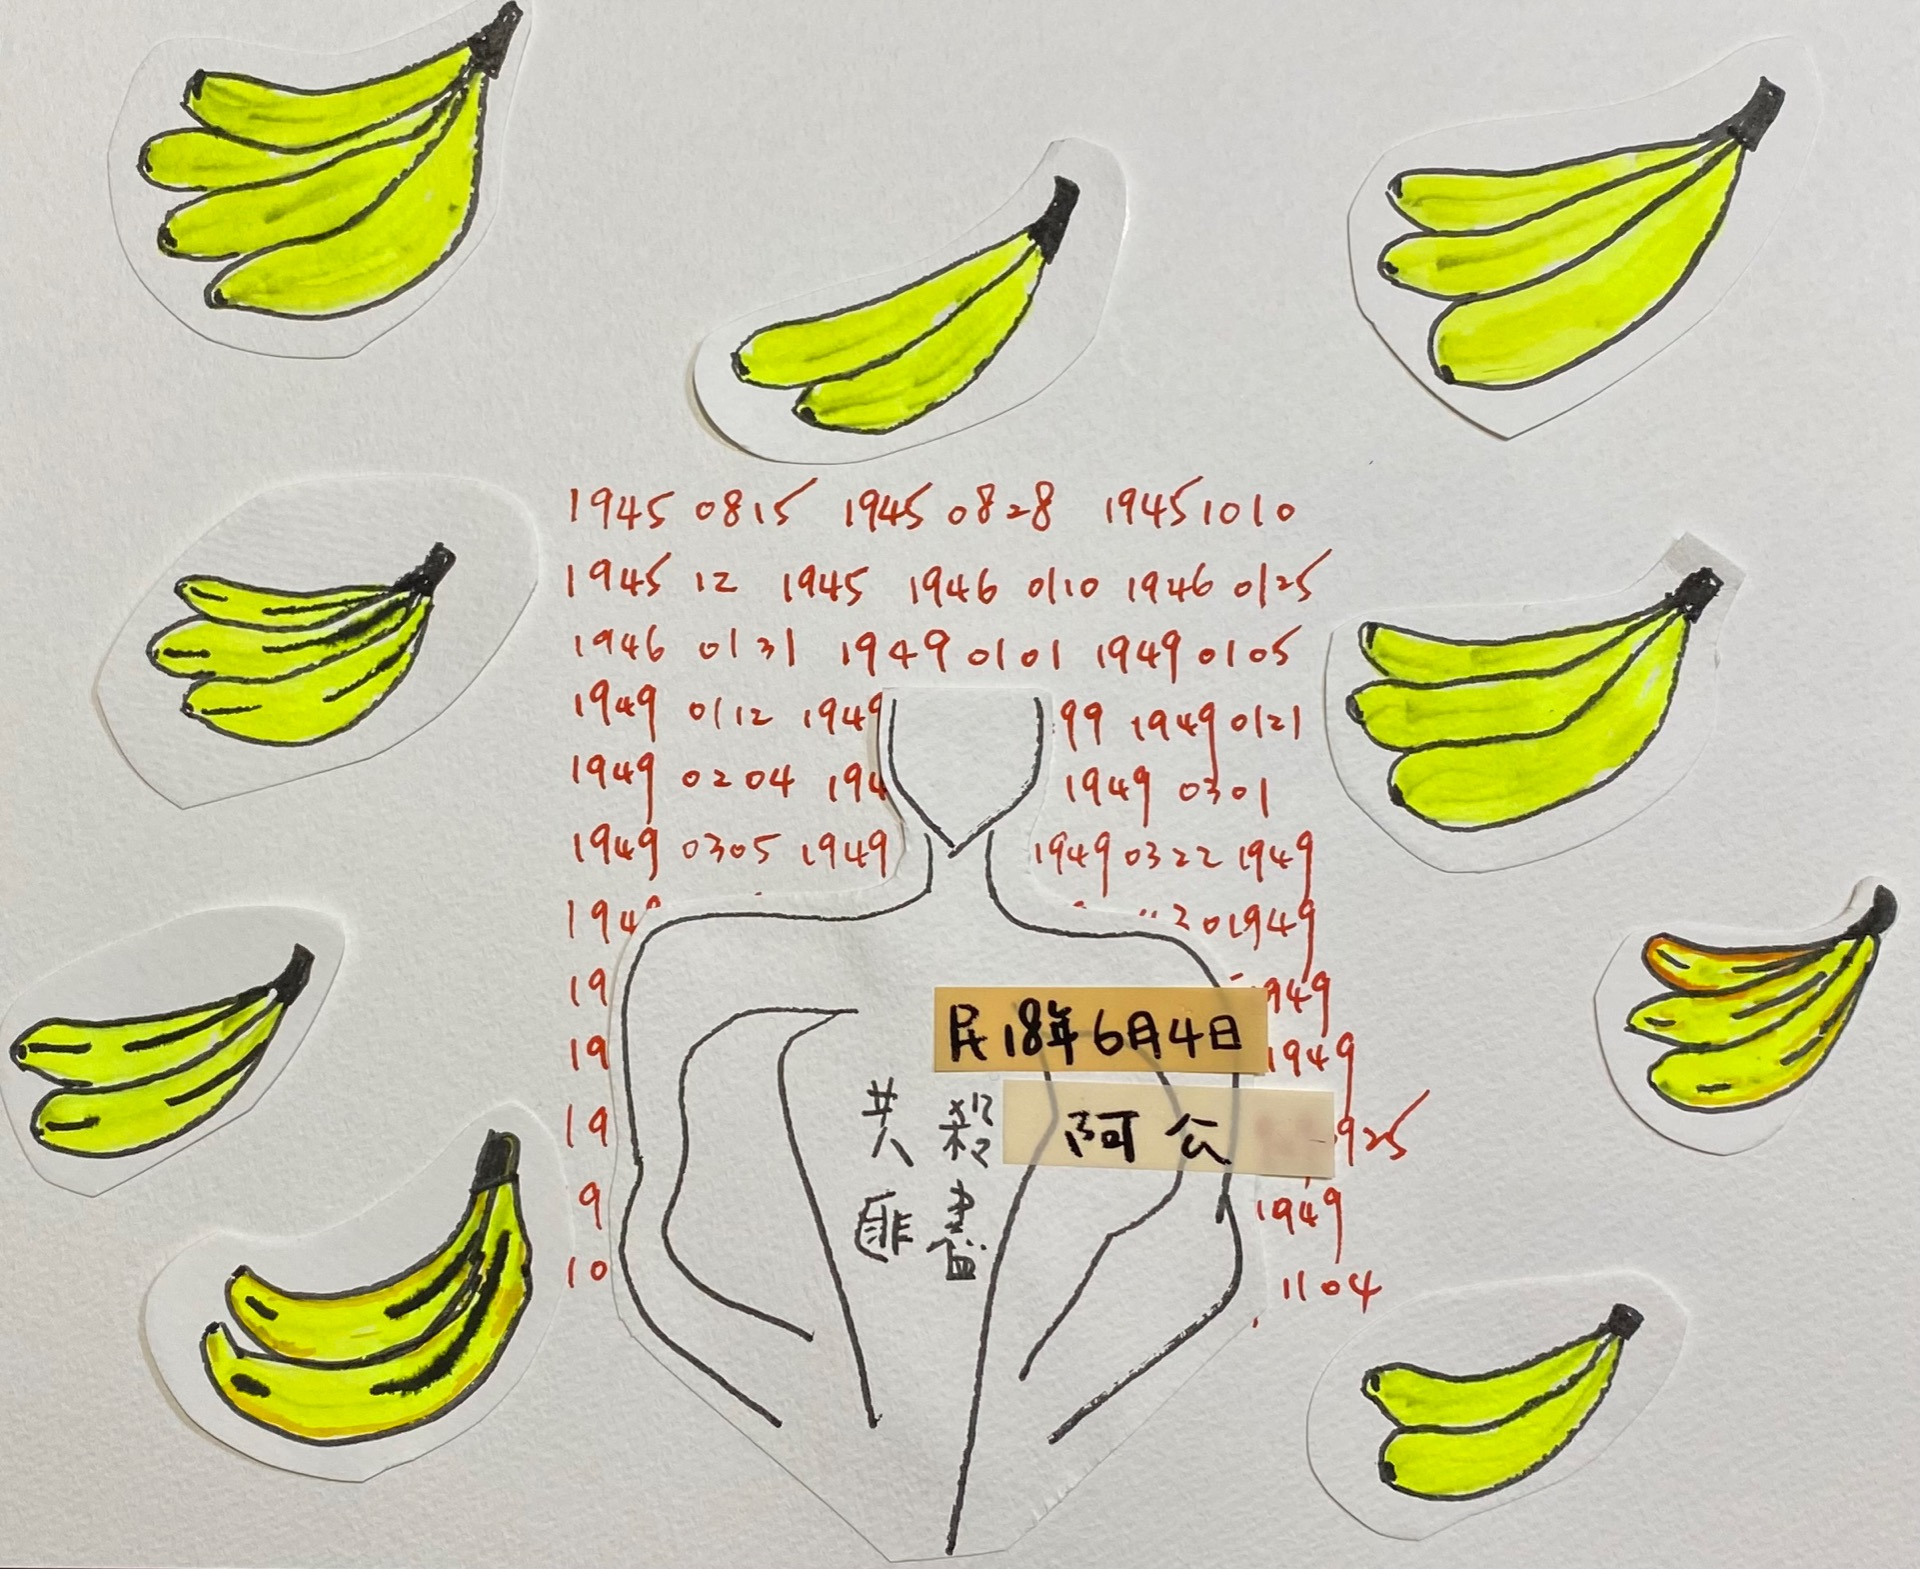 1945 0815 1945 0828 1945 1010
1945 12 1945 1946 0110 1946 0125
1946 0131 1949 0101 1949 0105
1949 0112 1949 99 1949 0121
1949 0204 194 1949 0301
1949 0305 1949 1949 0322 1949
194 20 1949
19 1949
19 1949
19 925
9 1949
10 1104
民18年6月4日
阿公
殺盡
共匪